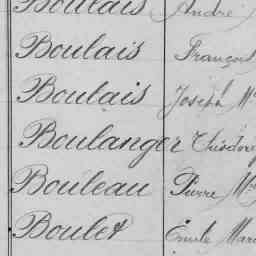 Boulais André
Boulais François
Boulais Joseph M
Boulanger Théodore
Bouleau Pierre M
Boulet Émile Mari